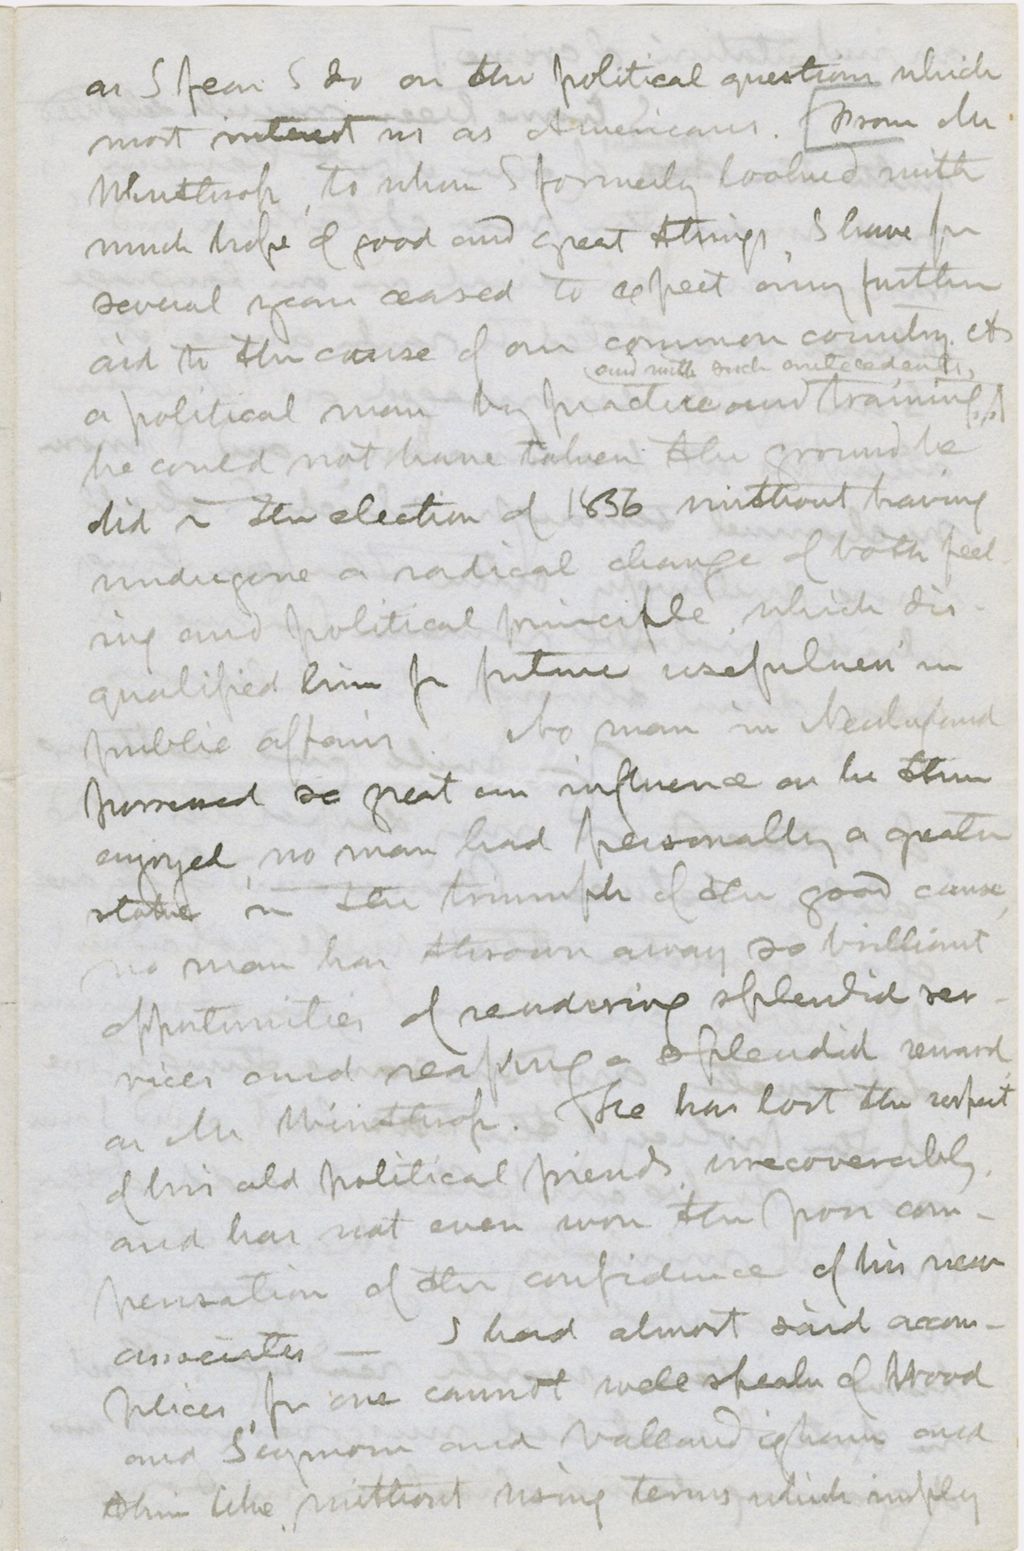 as I fear I do on the political questions which
most interest us as Americans. [From Mr
Winthrop, to whom I formerly looked with
much hope of good and great things, I have for
several years ceased to expect any further
aid to the cause of our common country. As
and with such antecedents,
a political man by practice and training,
he could not have taken the ground he
did in the election of 1856 without having
undergone a radical change of both feel-
ing and political principle, which dis-
qualified him for future usefulness in
public affairs. No man in New England
possessed so great an influence as he then
enjoyed, no man had personally a greater
stake in the triumph of the good cause,
no man has thrown away so brilliant
opportunities of rendering splendid ser-
vices and reaping a splendid reward,
as Mr Winthrop. He has lost the respect
of his old political friends, irrecoverably,
and has not even won the poor com-
pensation of the confidence of his new
associates — I had almost said accom-
plices, for one cannot well speak of Wood
and Seymour and Vallandigham and
their like, without using terms which imply